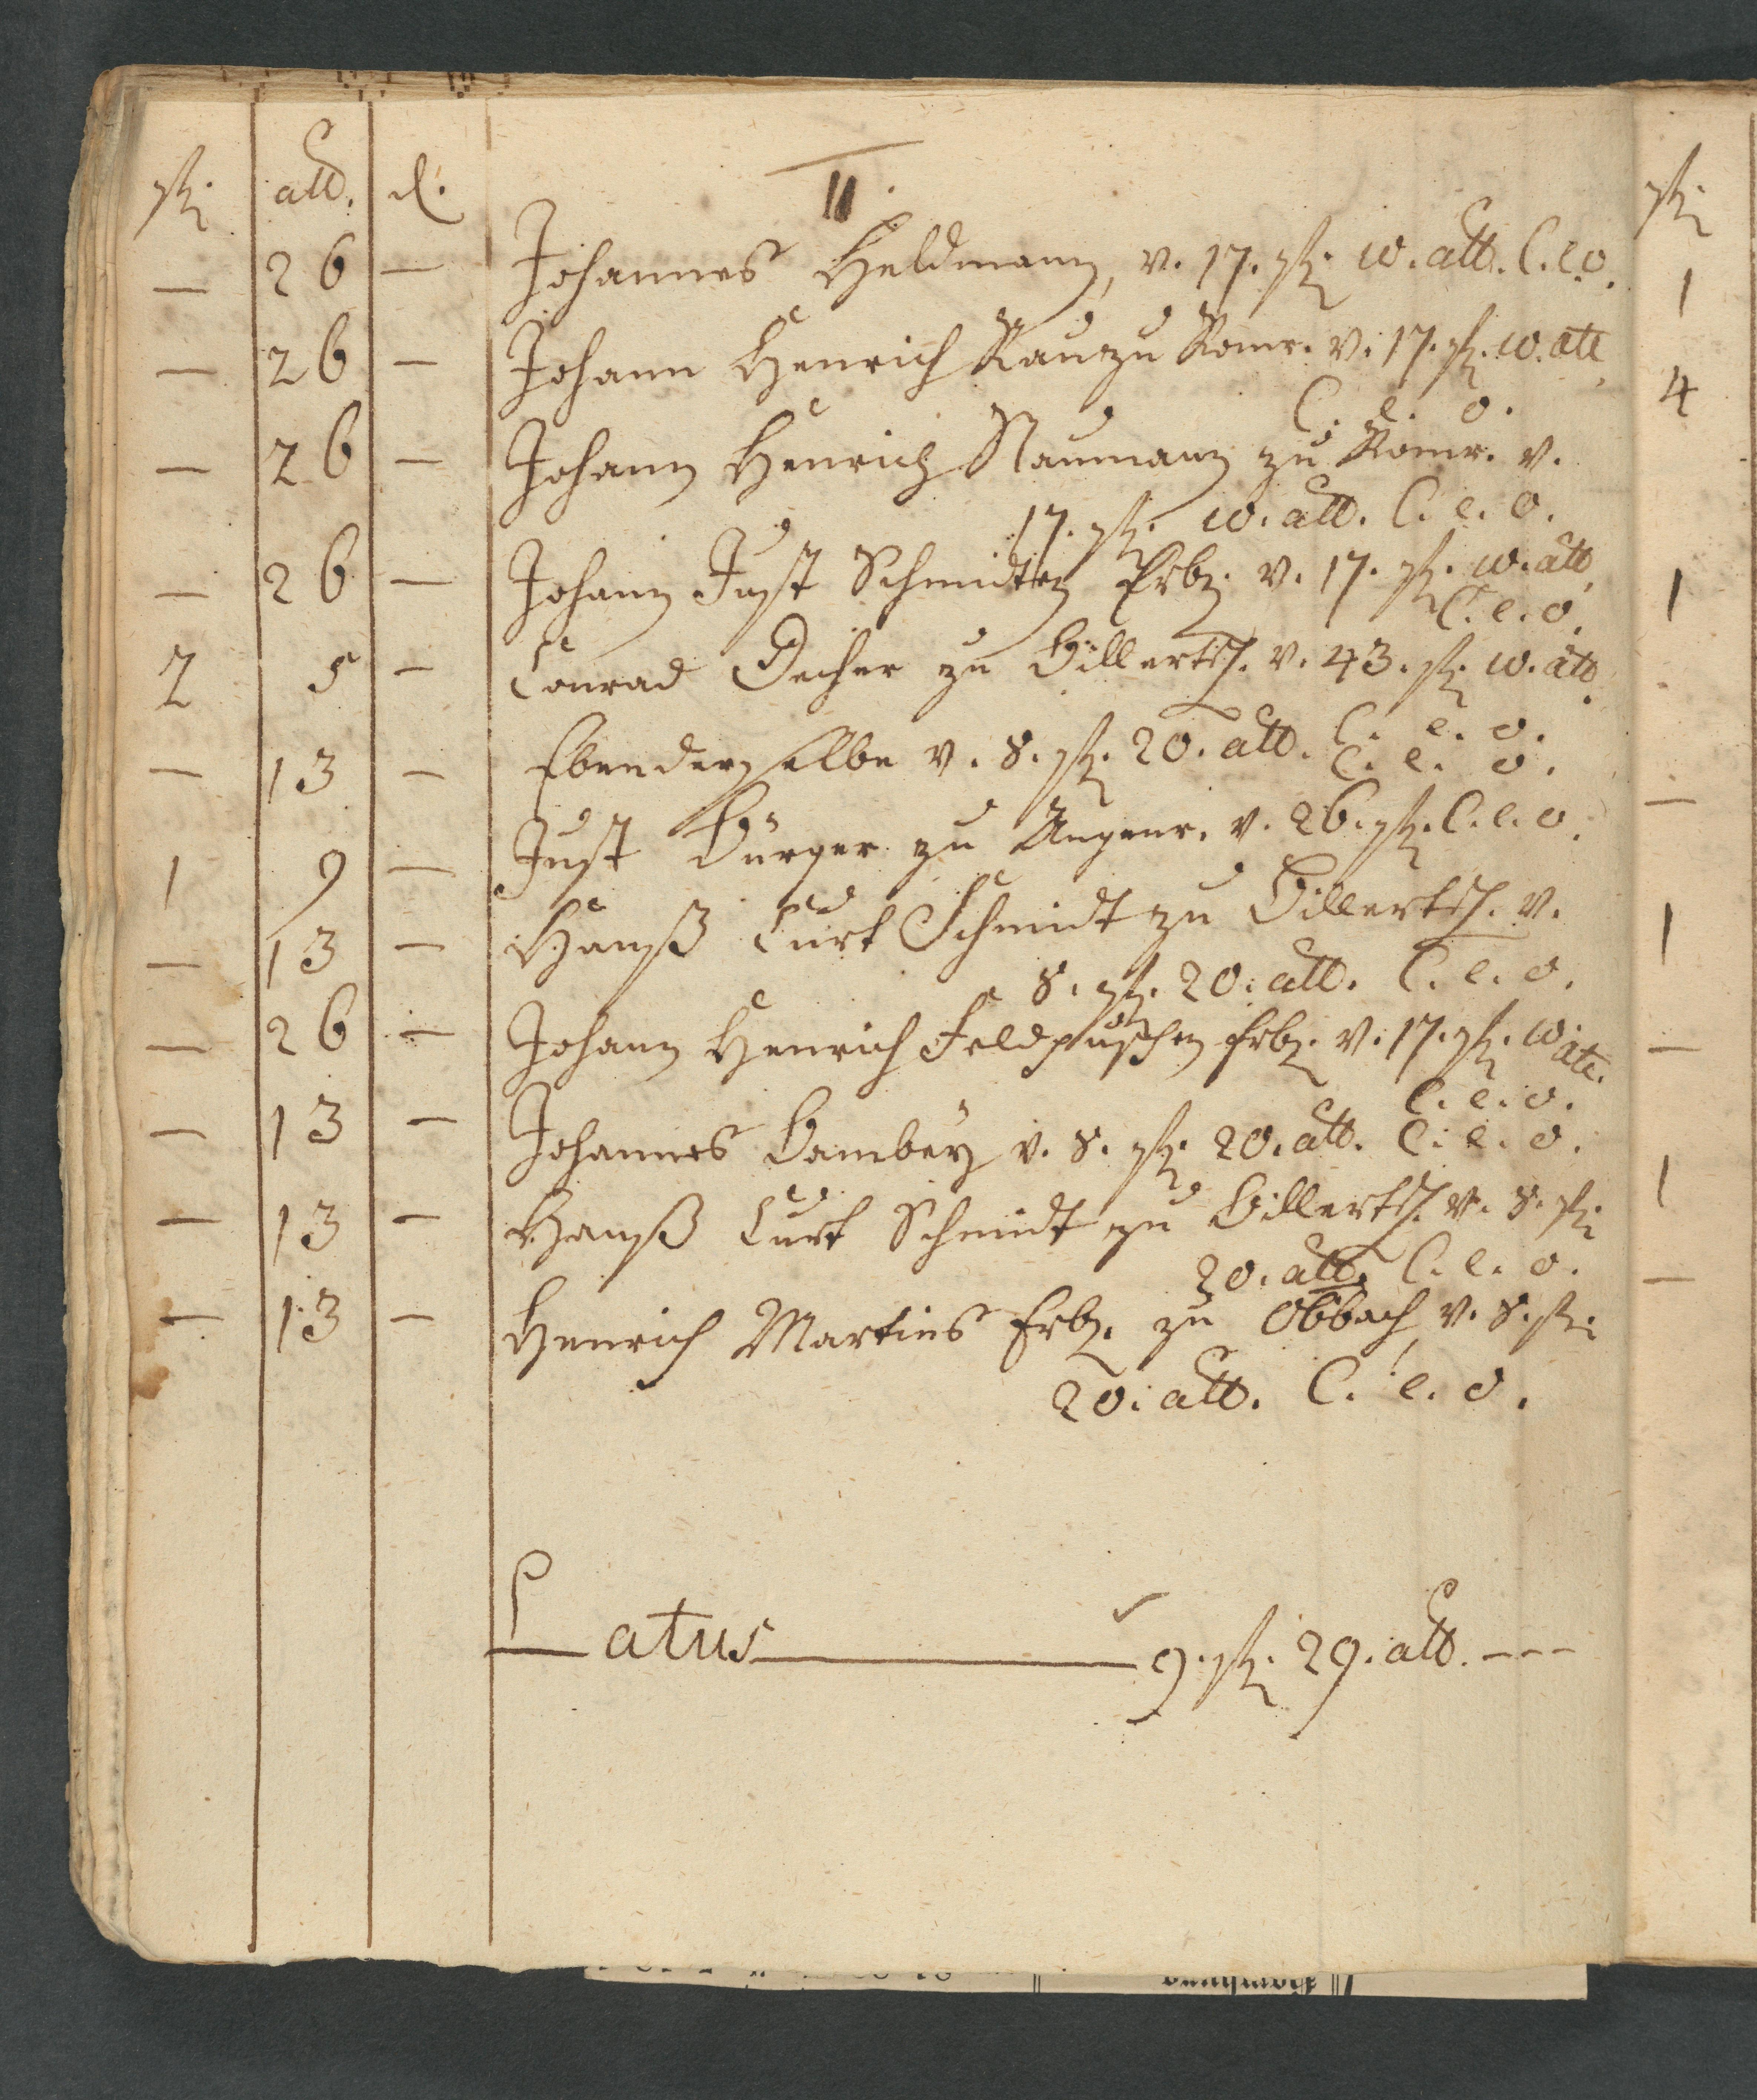 fl. alb. d.
11.
— 26 — Johannes Heldmann, v. 17. fl. 10. alb. C. e. o.
— 26 — Johann Henrich Rau zu Romr. v. 17. fl. 10. alb.
C. e. o.
— 26 — Johann Henrich Naumann zu Romr. v.
17. fl. 10. alb. C. e. o.
— 26 — Johann Just Schmidten Erb. v. 17. fl. 10. alb.
C. e. o.
2 5 — Conrad Decher zu Billerts. v. 43. fl. 10. alb.
C. e. o.
— 13 — Ebenderselbe v. 8. fl. 20. alb. C. e. o.
1 9 — Just Bürger zu Angenr. v. 26. fl. C. e. o.
— 13 — Hanß Curt Schmidt zu Billerts. v.
8. fl. 20. alb. C. e. o.
— 26 — Johann Henrich Feldpuschen Erb. v. 17. fl. 10. alb.
C. e. o.
— 13 — Johannes Bambey v. 8. fl. 20. alb. C. e. o.
— 13 — Hanß Curt Schmidt zu Billerts. v. 8. fl.
20. alb. C. e. o.
— 13 — Henrich Martins Erb. zu Obbach v. 8. fl.
20. alb. C. e. o.
Latus 9. fl. 29. alb. ---
fl.
1
4
1
—
1
—
1
—